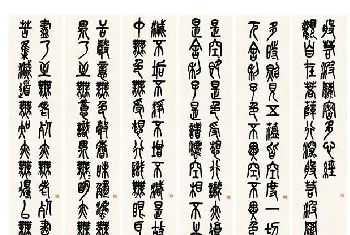 般若波羅密多心經
觀自在菩薩行深般若波羅
多時照見五蘊皆空度一切
厄舍利子色不異空空不
是空
是舍利子是諸法空相不生
滅不垢不淨不增不減是故
中無色無受想行識無眼耳
舌身意無色聲香味觸法無
界乃至無意識界無無明亦無
盡乃至無老死亦無老死盡
苦集滅道無智亦無得以